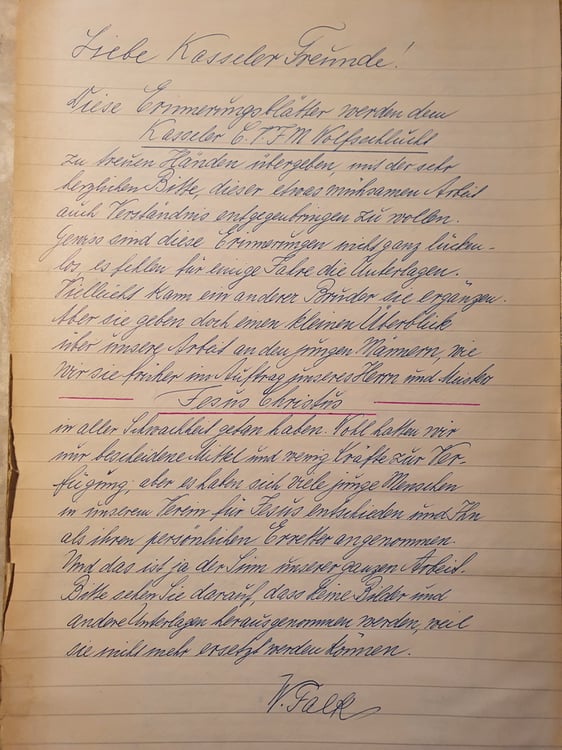 Liebe Kasseler Freunde!
Diese Erinnerungsblätter werden dem
Kasseler C.V.J.M Wolfsschlucht
zu treuen Händen übergeben, mit der sehr
herzlichen Bitte, dieser etwas mühsamen Arbeit
auch Verständnis entgegenbringen zu wollen.
Gewiss sind diese Erinnerungen nicht ganz lücken-
los, es fehlen für einige Jahre die Unterlagen.
Vielleicht kann ein anderer Bruder sie ergänzen.
Aber sie geben doch einen kleinen Überblick
über unsere Arbeit an den jungen Männern, wie
wir sie früher im Auftrag unseres Herrn und Meister
Jesus Christus
in aller Schwachheit getan haben. Wohl hatten wir
nur bescheidene Mittel und wenig Kräfte zur Ver-
fügung, aber es haben sich viele junge Menschen
in unserem Verein für Jesus entschieden und Ihn
als ihren persönlichen Erretter angenommen.
Und das ist ja der Sinn unserer ganzen Arbeit.
Bitte sehen Sie darauf, dass keine Bilder und
andere Unterlagen herausgenommen werden, weil
sie nicht mehr ersetzt werden können.
W. Falk